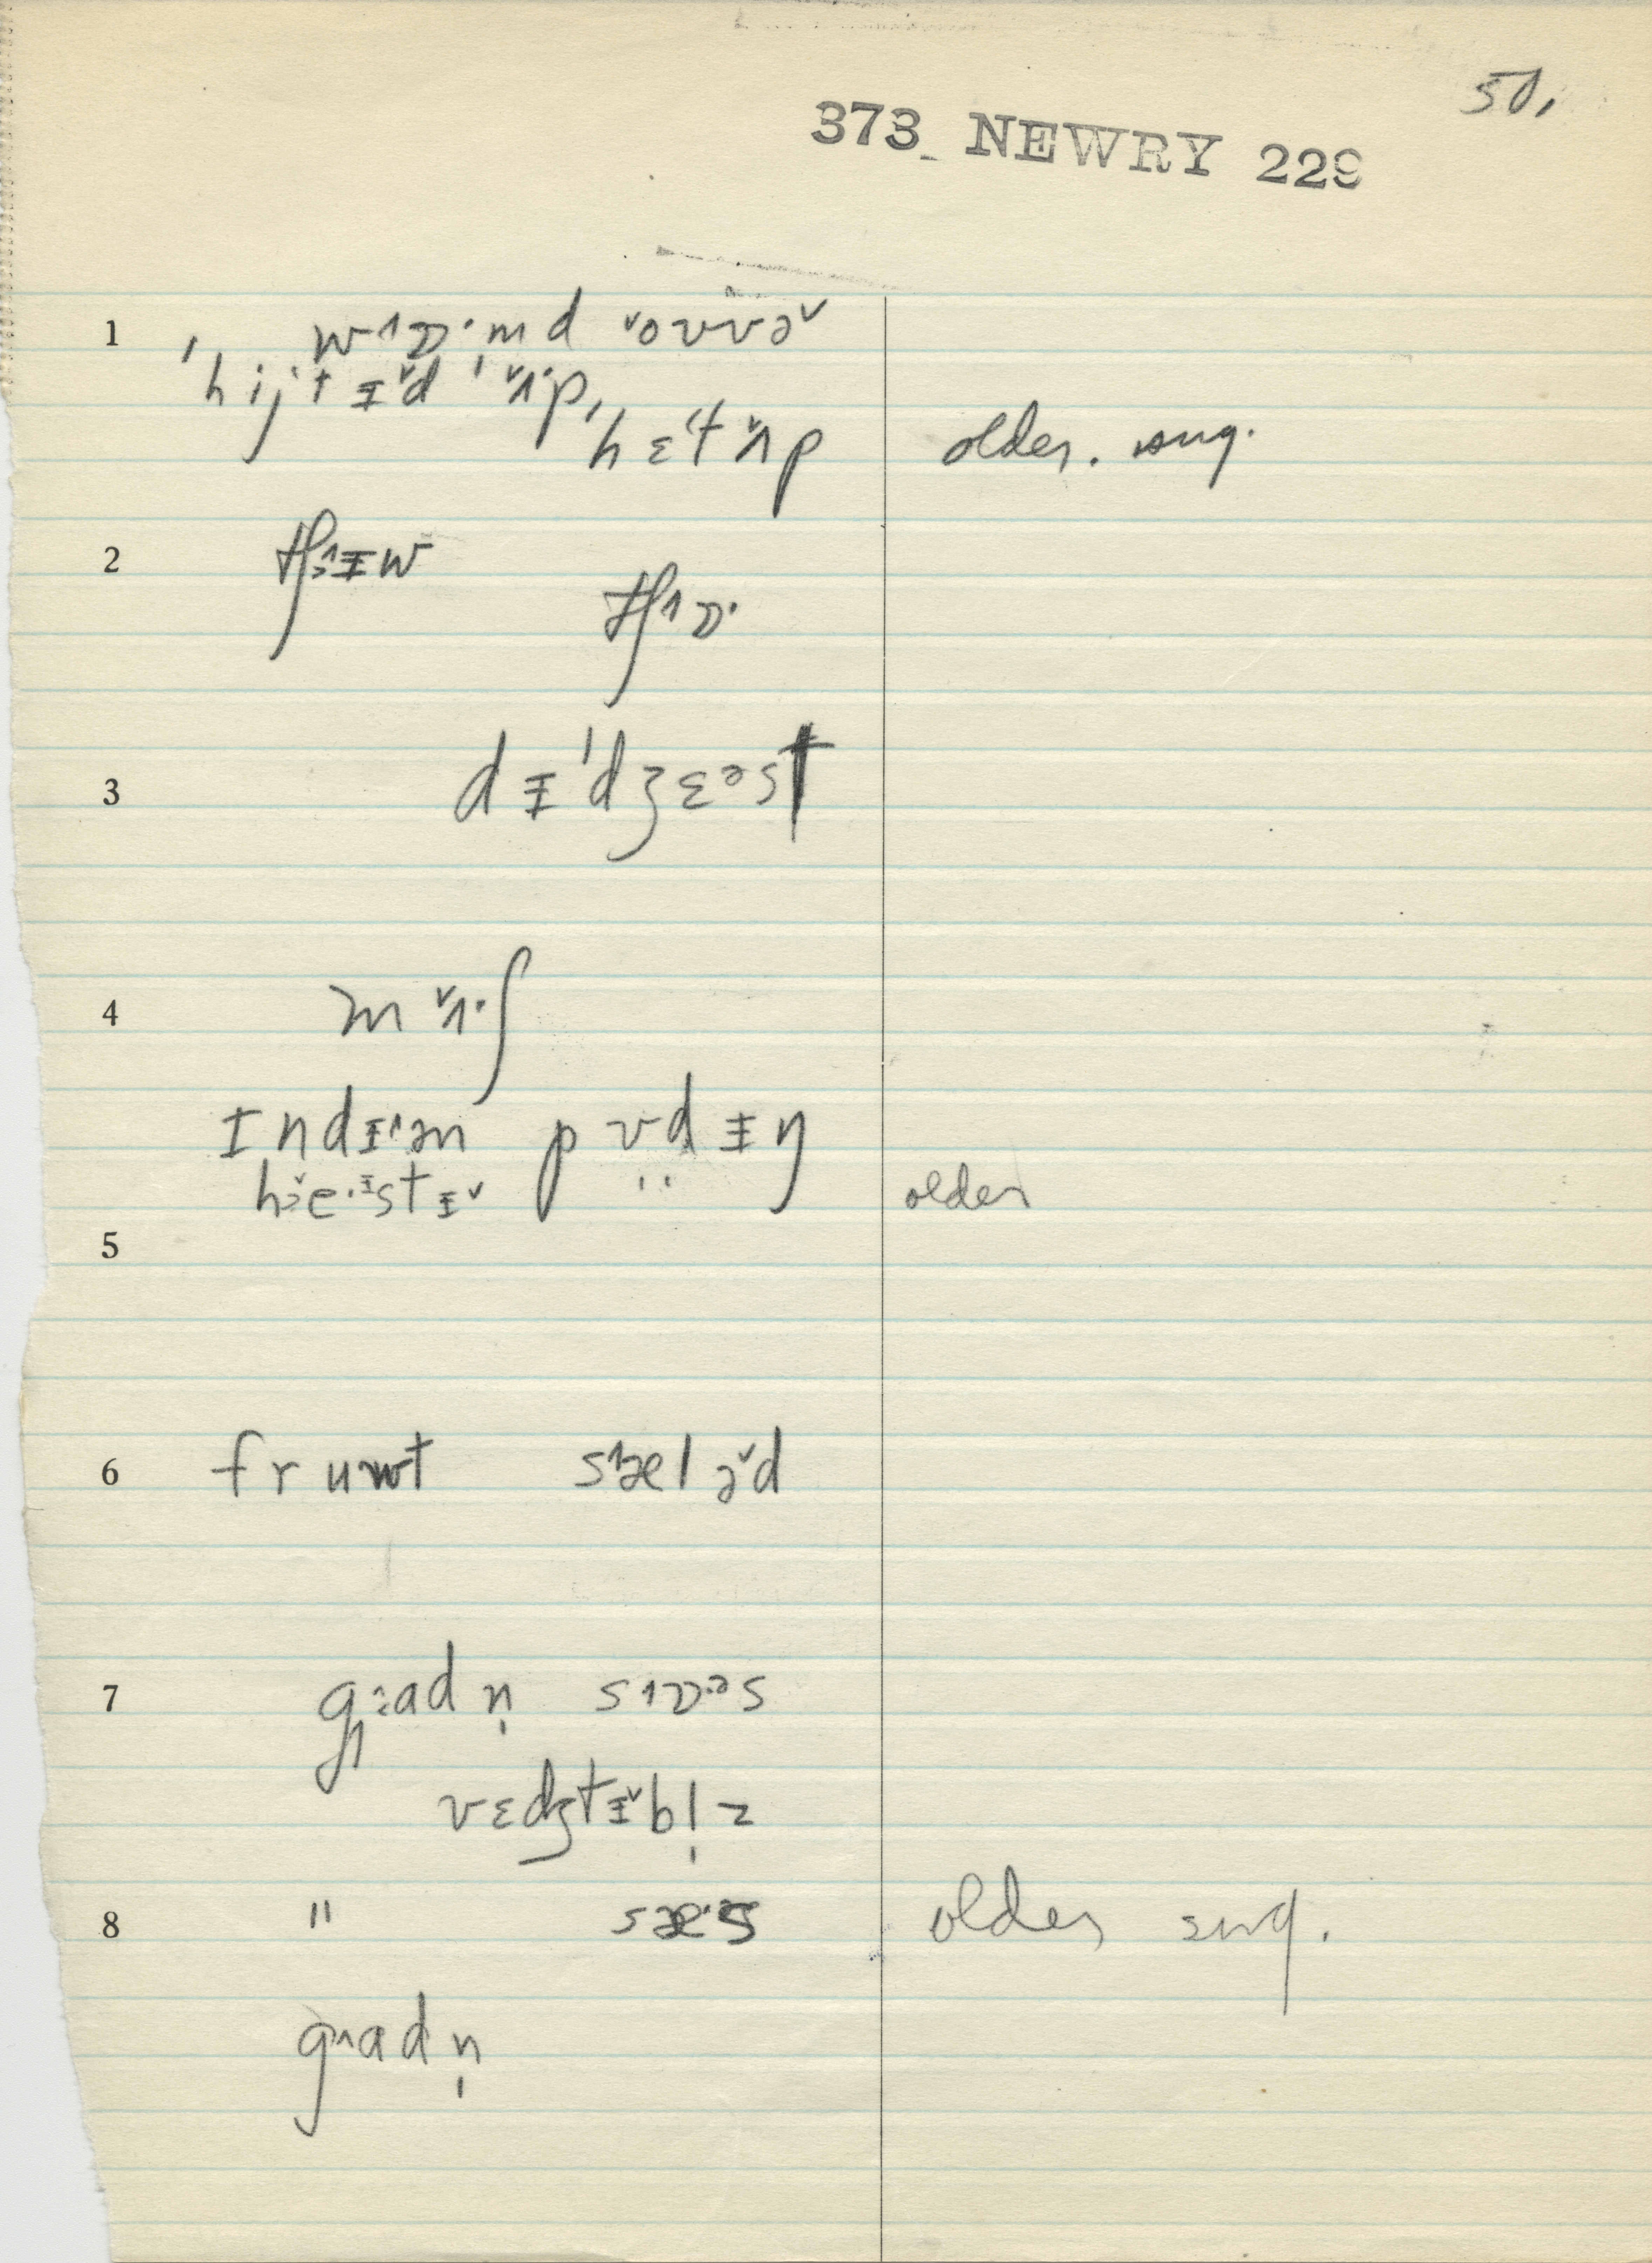 50.
373 NEWRY 229
1 w˄ɒ·md ˅oʊvə˅
ˈhijtɪ˅d ˈʌ˅·p,
ˈhɛ˂t ʌ˅p older. sug.
2 tʃɜ˄ɪw
tʃ˄ɒ·
3 dɪˈdʒɛəst
4 mʌ˅·ʃ
ɪndɪ˄ən pʊdɪŋ
he·ɪstɪ˅ older
5
6 fruwt s˄æləd
7 g˄adn̩ s˄ɒəs
vɛdʒtɪ˅bl̩z
8 " sæ·s older sug.
g˄adn̩